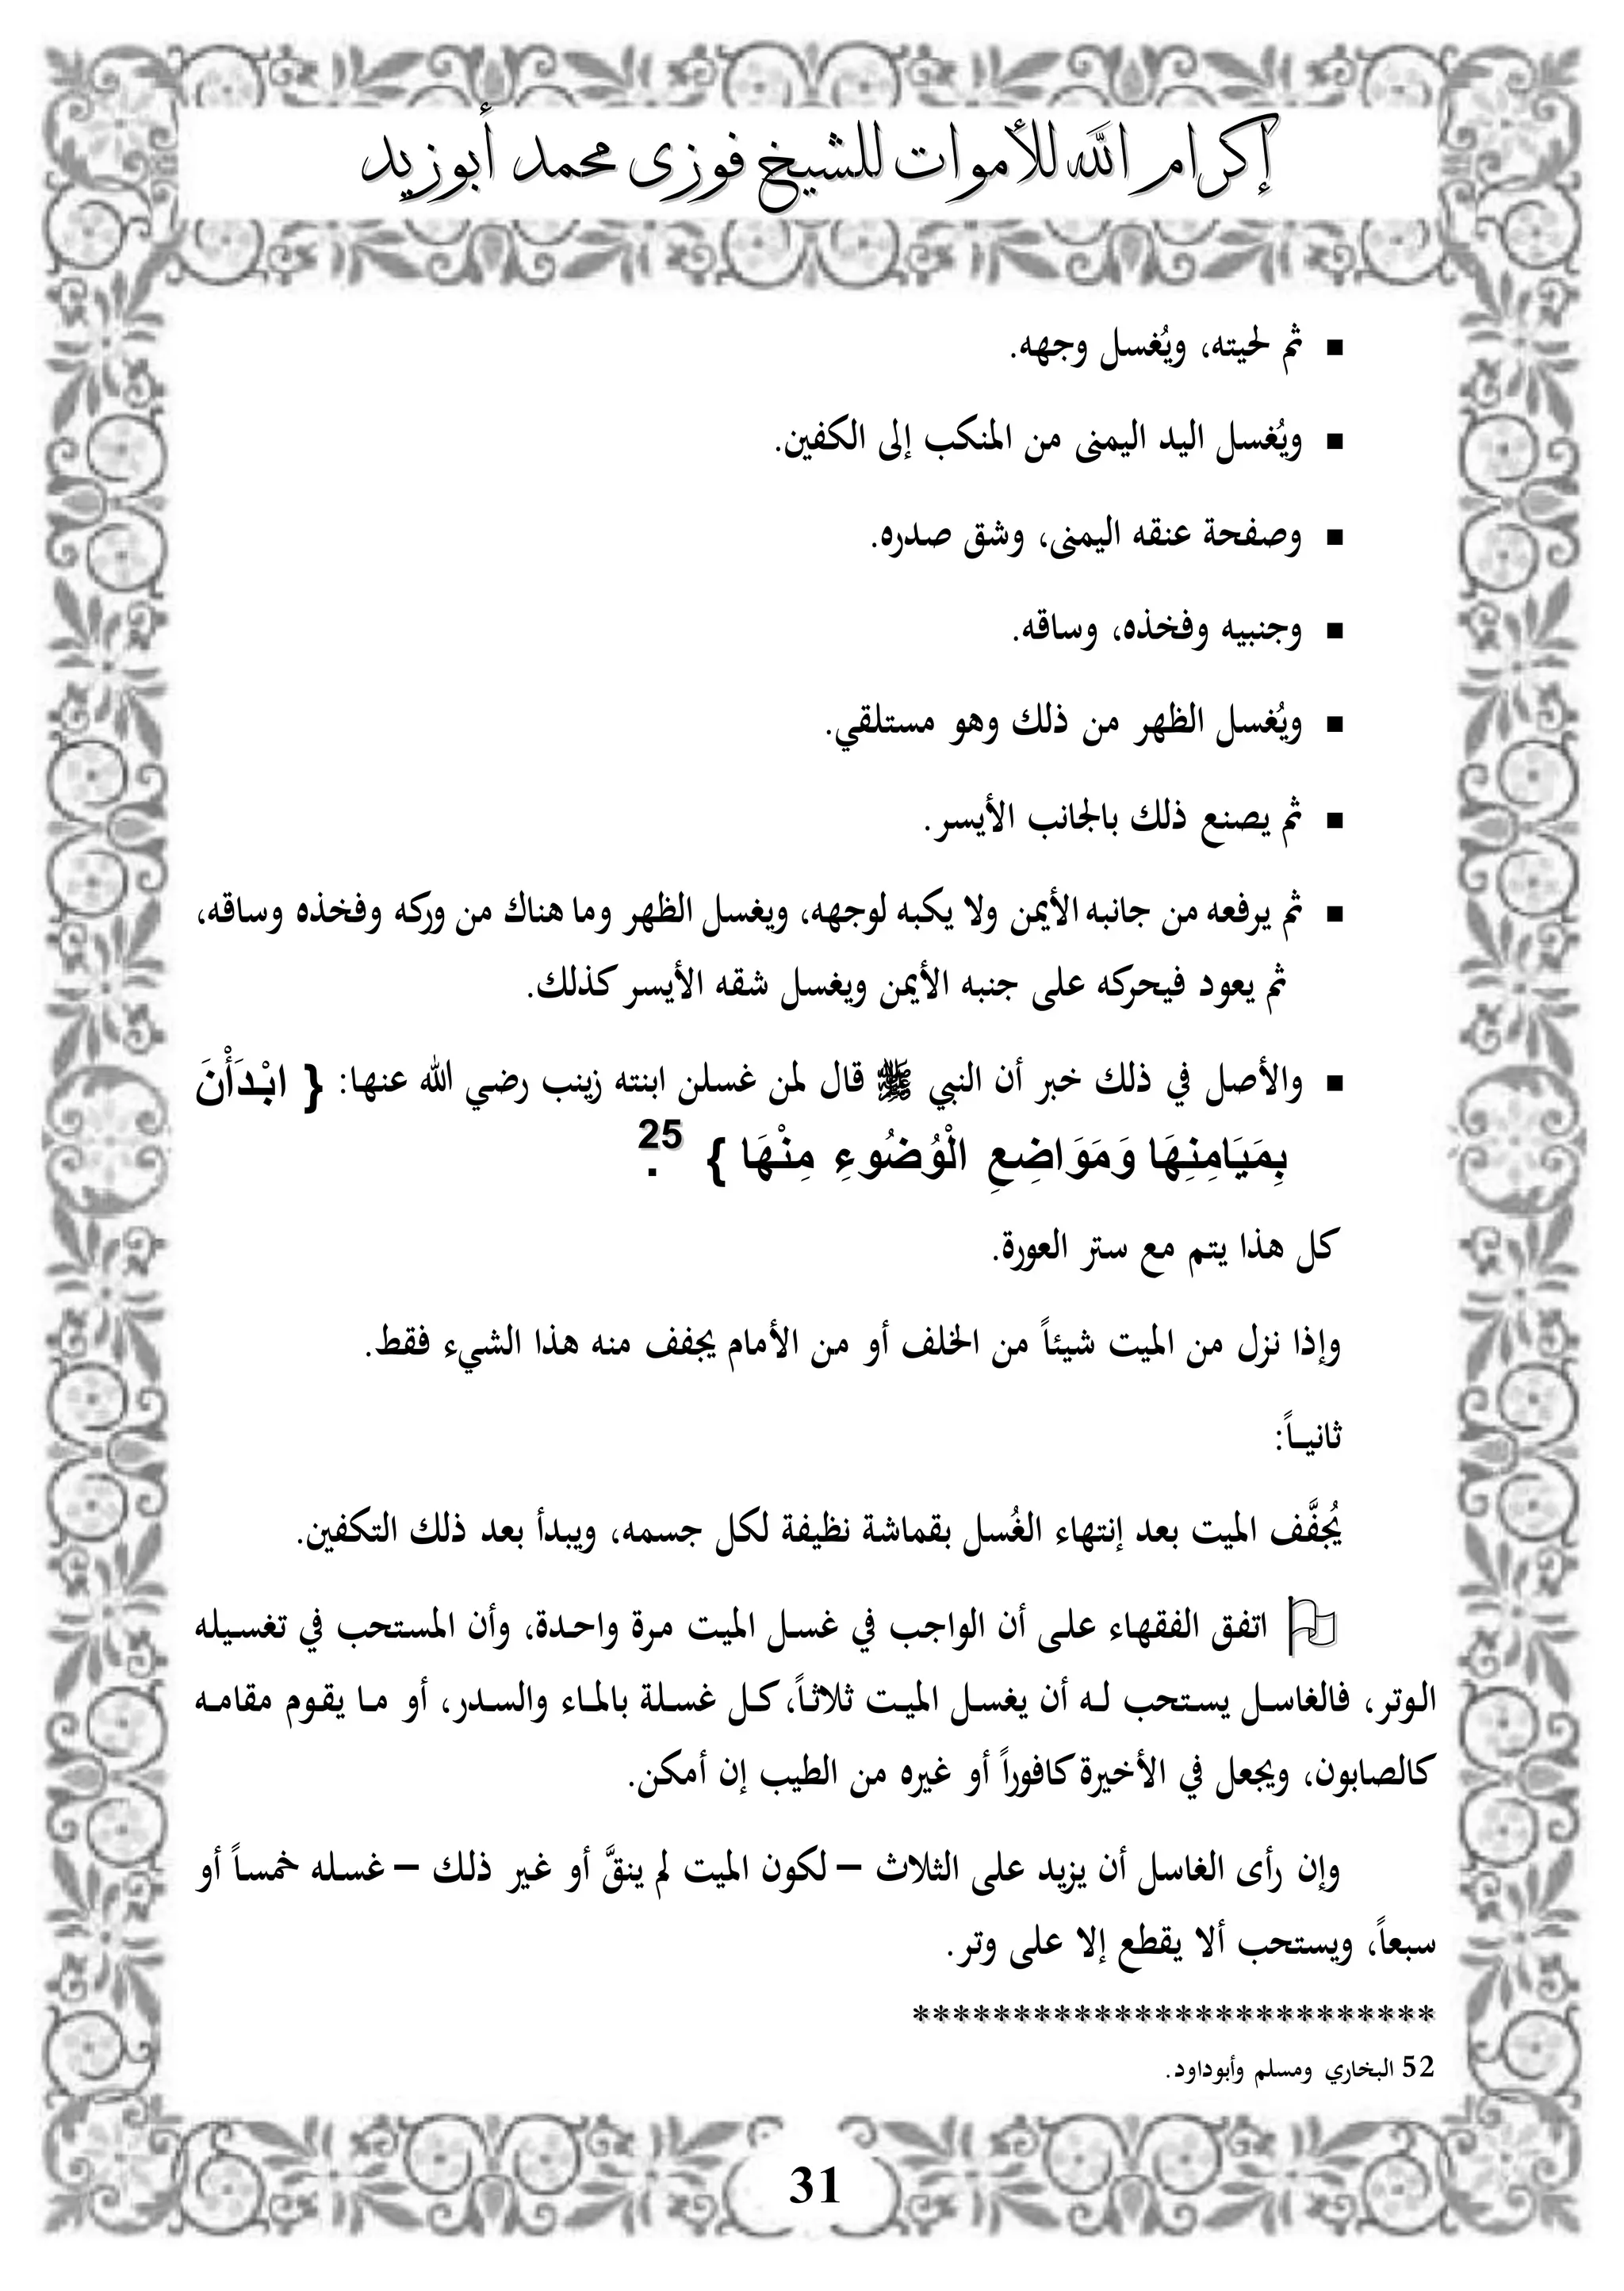 إكرام الله للأموات للشيخ فوزى محمد أبوزيد
▪ ثم لحيته، ويُغسل وجهه.
▪ ويُغسل اليد اليمنى من المنكب إلى الكفين.
▪ وصفحة عنقه اليمنى، وشق صدره.
▪ وجنبيه وفخذه، وساقه.
▪ ويُغسل الظهر من ذلك وهو مستلقي.
▪ ثم يصنع ذلك بالجانب الأيسر.
▪ ثم يرفعه من جانبه الأيمن ولا يكبه لوجهه، ويغسل الظهر وما هناك من وركه وفخذه وساقه،
ثم يعود فيحركه على جنبه الأيمن ويغسل شقه الأيسر كذلك.
▪ والأصل في ذلك خبر أن النبي ﷺ قال لمن غسلن ابنته زينب رضي الله عنها: { ابْدَأْنَ
بِمَيَامِنِهَا وَمَوَاضِعِ الْوُضُوءِ مِنْهَا } 25.
كل هذا يتم مع ستر العورة.
وإذا نزل من الميت شيئاً من الخلف أو من الأمام يجفف منه هذا الشيء فقط.
ثانيـاً:
يُجفَّف الميت بعد إنتهاء الغُسل بقماشة نظيفة لكل جسمه، ويبدأ بعد ذلك التكفين.
اتفق الفقهاء على أن الواجب في غسل الميت مرة واحدة، وأن المستحب في تغسيله
الوتر، فالغاسل يستحب له أن يغسل الميت ثلاثاً، كل غسلة بالماء والسدر، أو ما يقوم مقامه
كالصابون، ويجعل في الأخيرة كافوراً أو غيره من الطيب إن أمكن.
وإن رأى الغاسل أن يزيد على الثلاث – لكون الميت لم ينقَّ أو غير ذلك – غسله خمساً أو
سبعاً، ويستحب ألا يقطع إلا على وتر.
**************************
52 البخاري ومسلم وأبوداود.
31